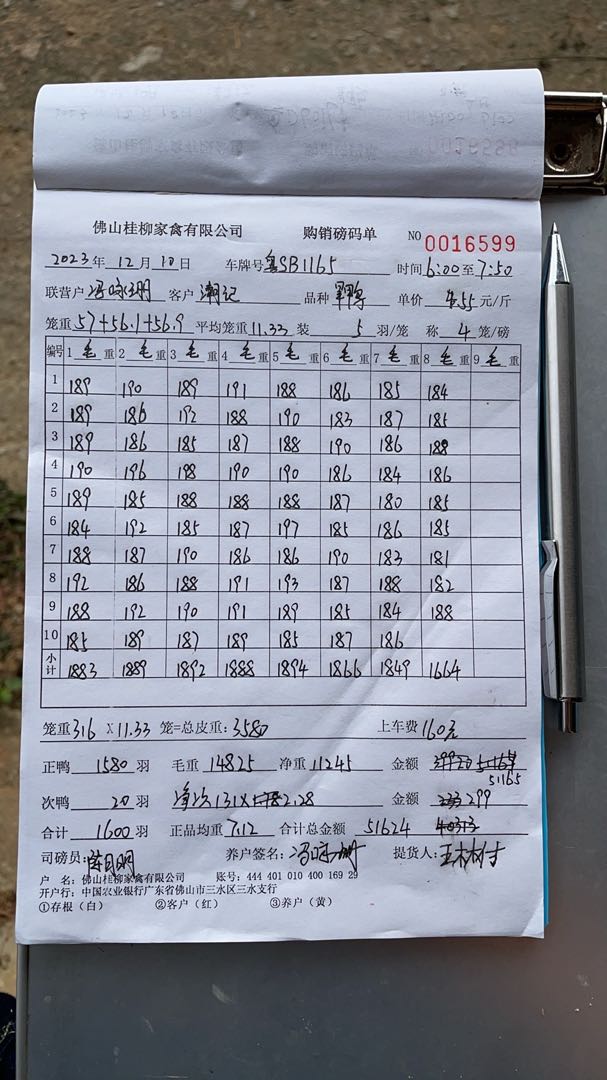 佛山桂柳家禽有限公司 购销磅码单 NO 0016599
2023年 12月 10日 车牌号 粤SB1165 时间 6:00至7:50
联营户 客户 潮记 品种 单价 4.55 元/斤
笼重 57+56.1+56.9 平均笼重 11.33 装 5 羽/笼 称 4 笼/磅
编号 1 毛重 2 毛重 3 毛重 4 毛重 5 毛重 6 毛重 7 毛重 8 毛重 9 毛重
1 189 190 189 191 188 186 185 184
2 189 186 192 188 190 183 187 185
3 189 186 185 187 188 190 186 188
4 190 196 198 190 190 186 184 186
5 189 185 188 188 188 187 180 185
6 184 192 185 187 197 185 186 185
7 188 187 190 186 186 190 183 181
8 192 186 188 191 193 187 188 182
9 188 192 190 191 189 185 184 188
10 185 189 187 189 185 187 186
小计 1883 1889 1892 1888 1894 1866 1849 1664
笼重 316 X 11.33 笼=总皮重: 3580 上车费 160元
正鸭 1580 羽 毛重 14825 净重 11245 金额 51165
次鸭 20 羽 净次131X 2.28 金额 299
合计 1600 羽 正品均重 7.12 合计总金额 51624
司磅员: 养户签名: 提货人:
户 名: 佛山桂柳家禽有限公司 账号: 444 401 010 400 169 29
开户行: 中国农业银行广东省佛山市三水区三水支行
①存根（白） ②客户（红） ③养户（黄）